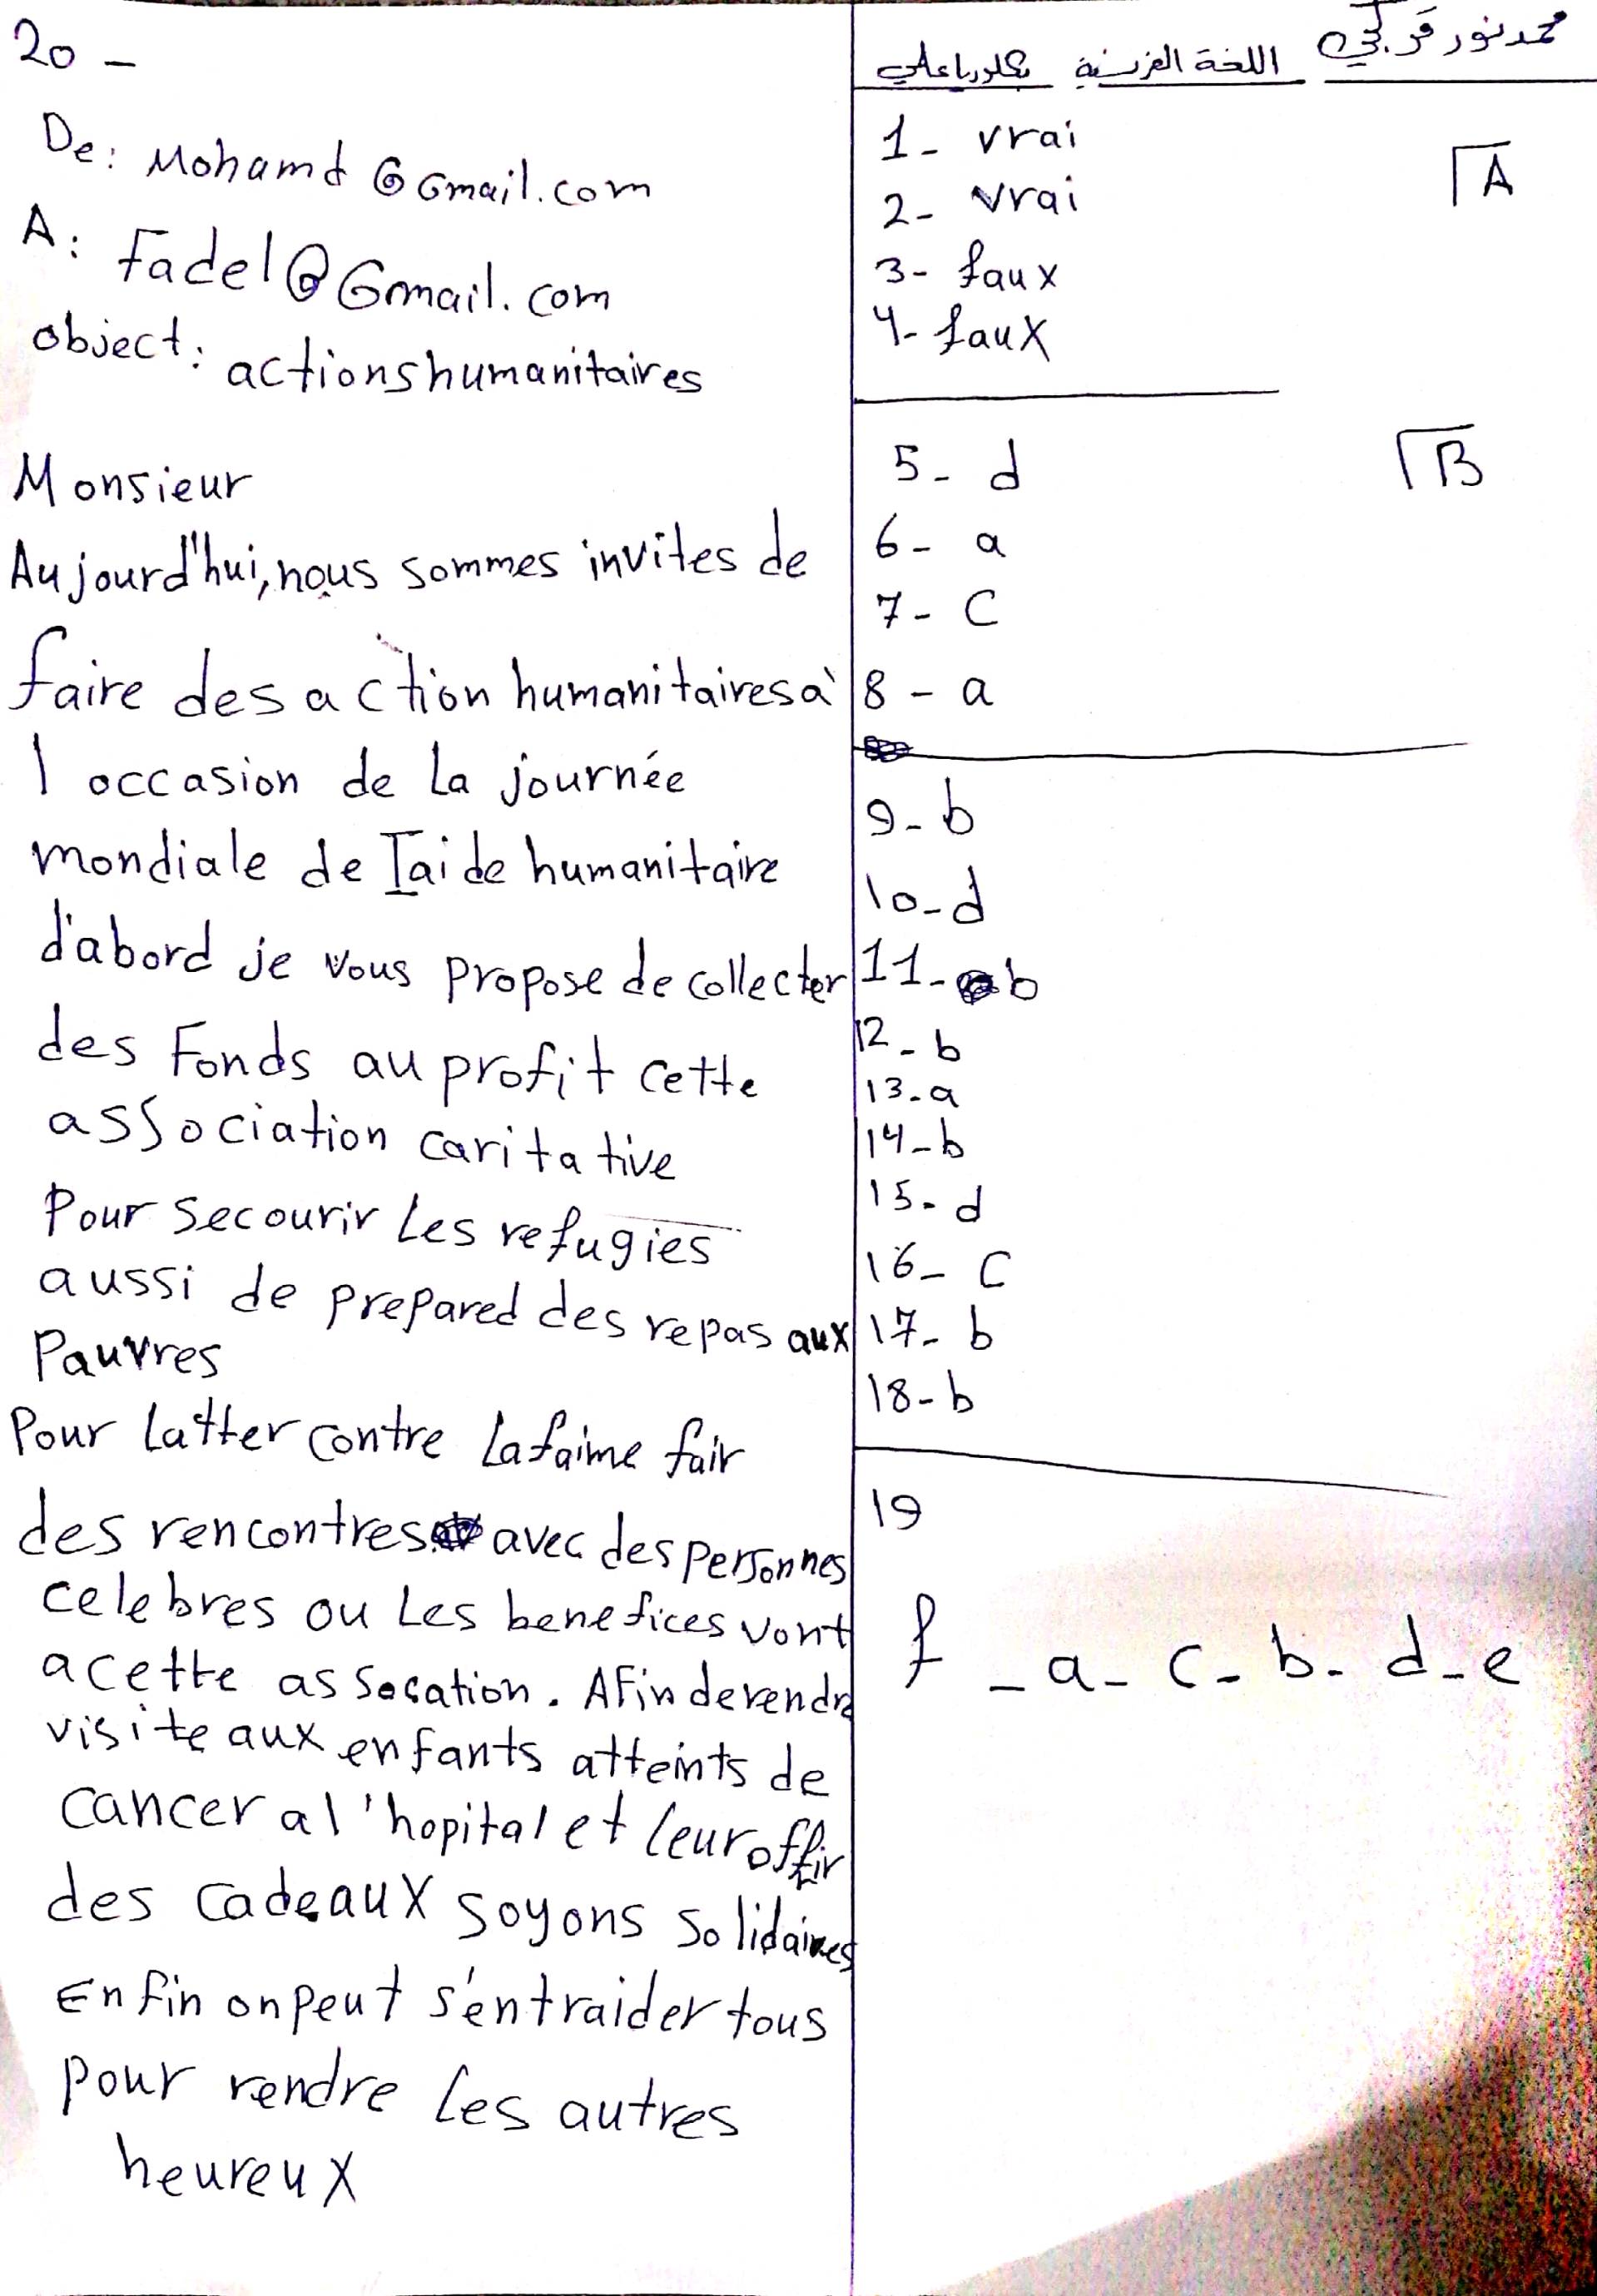 محمد نور
اللغة الفرنسية
بكلوريا علمي
1- vrai
A
2- vrai
3- faux
4- faux
5- d
B
6- a
7- C
8- a
9- b
10- d
11- b
12- b
13- a
14- b
15- d
16- C
17- b
18- b
19
f - a - c - b - d - e
20 -
De: Mohamd @ Gmail.com
A: Fadel @ Gmail.com
object: actions humanitaires
Monsieur
Aujourd'hui, nous sommes invites de
faire des action humanitaires à
l occasion de La journée
mondiale de l'aide humanitaire
d'abord je vous propose de collecter
des Fonds au profit cette
association caritative
Pour secourir Les refugies
aussi de prepared des repas aux
Pauvres
Pour Latter contre La faime fair
des rencontres avec des personnes
celebres ou Les benefices vont
a cette assocation. Afin de rendre
visite aux enfants atteints de
cancer a l'hopital et leur offrir
des cadeaux soyons solidaires
Enfin on peut s'entraider tous
pour rendre les autres
heureux